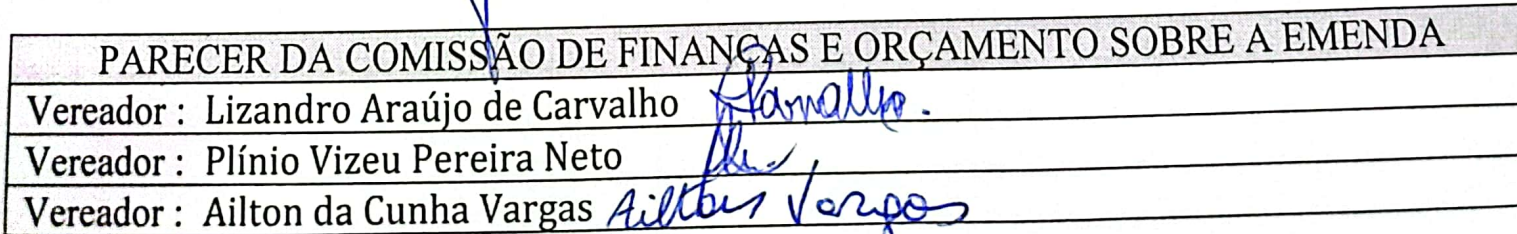 PARECER DA COMISSÃO DE FINANÇAS E ORÇAMENTO SOBRE A EMENDA
Vereador : Lizandro Araújo de Carvalho
Vereador : Plínio Vizeu Pereira Neto
Vereador : Ailton da Cunha Vargas Ailton Vargas